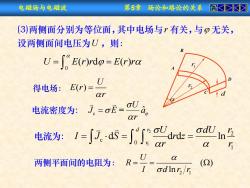 电磁场与电磁波
第5章 场论和路论的关系
⑶两侧面分别为等位面,其中电场与r有关,与φ无关,
设两侧面间电压为U,则:
U = ∫₀^α E(r)rdφ = E(r)rα
得电场: E(r) = U/αr
电流密度为: J⃗c = σE⃗ = σU/αr â_φ
电流为: I = ∫J⃗c·dS⃗ = ∫₀^d ∫_{r₁}^{r₂} σU/αr drdz = σdU/α ln r₂/r₁
两侧平面间的电阻为: R = U/I = α/(σd ln r₂/r₁) (Ω)